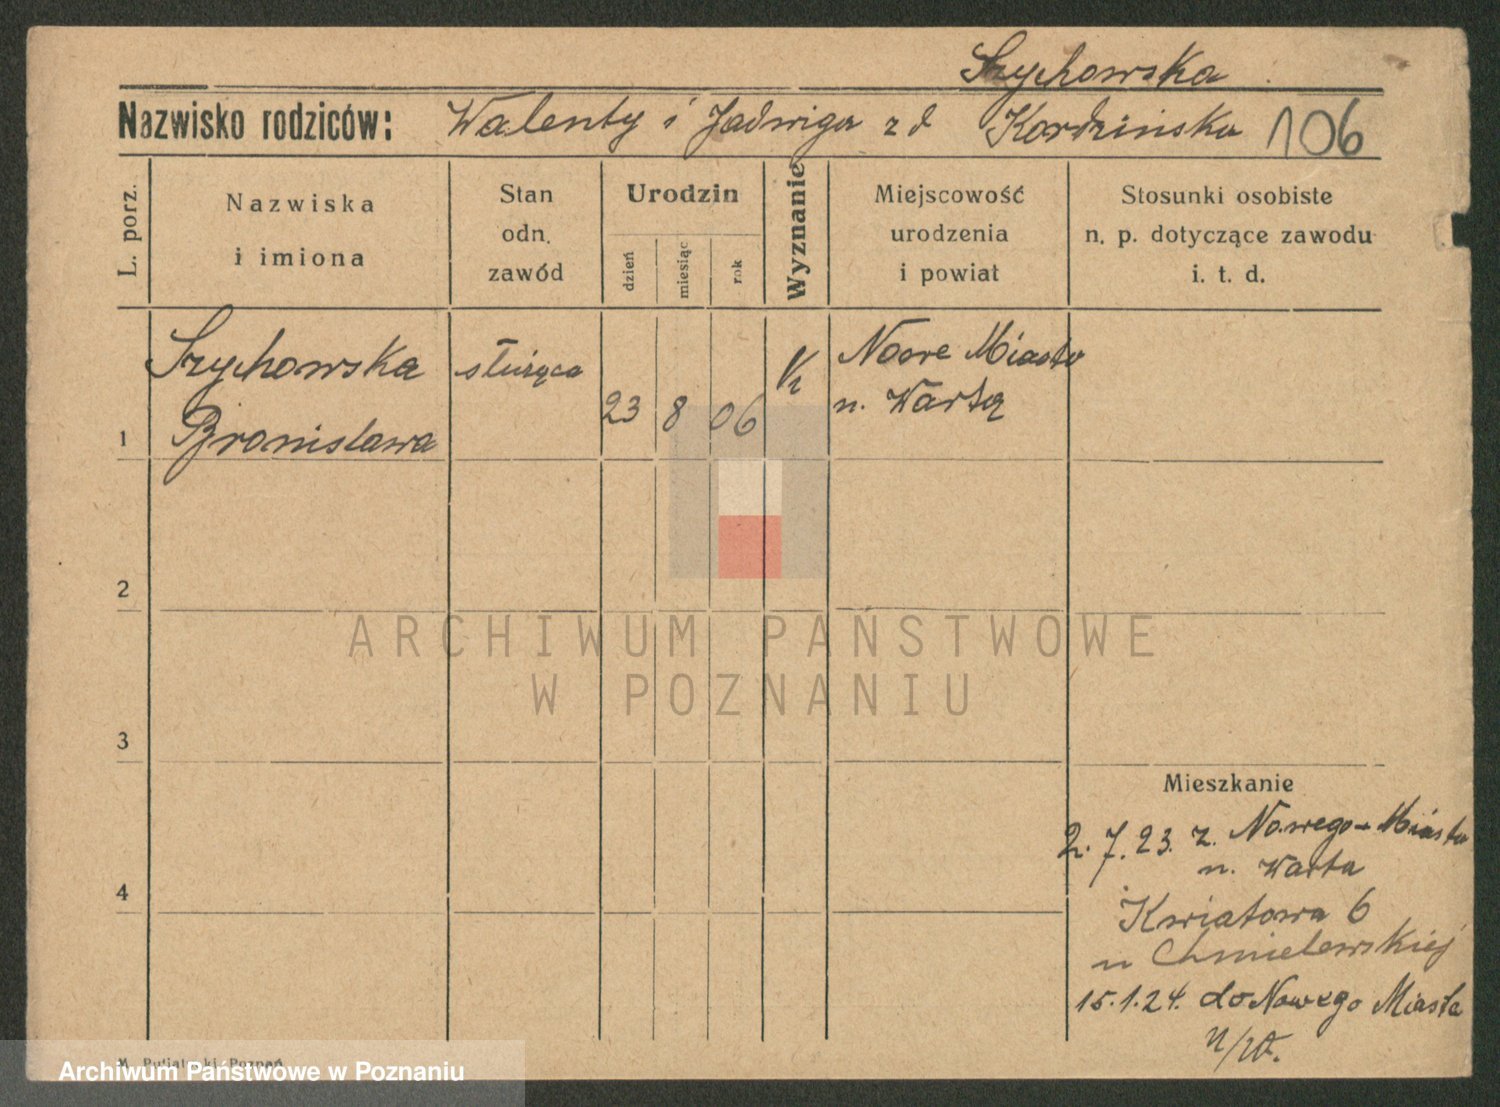 Szychowska
Nazwisko rodziców: Walenty i Jadwiga zd Kordzińska 106
L. porz.
Nazwiska
i imiona
Stan
odn.
zawód
Urodzin
dzień
miesiąc
rok
Wyznanie
Miejscowość
urodzenia
i powiat
Stosunki osobiste
n. p. dotyczące zawodu
i. t. d.
1
Szychowska
Bronisława
służąca
23 8 06
K
Nowe Miasto
n. Wartą
2
3
4
ARCHIWUM PAŃSTWOWE
W POZNANIU
Mieszkanie
2. 7. 23. z. Nowego-Miasta
n. Warta
Kwiatowa 6
u Chmielewskiej
15.1.24. do Nowego Miasta
n/W.
Poznań
Archiwum Państwowe w Poznaniu